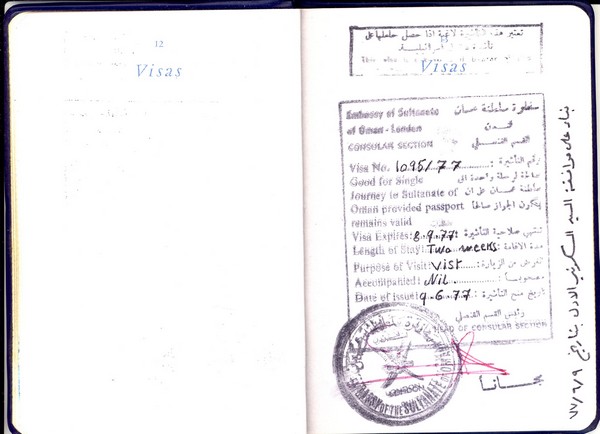 12
Visas
تعتبر هذه التأشيرة لاغية اذا حصل حاملها على
تأشيرة اسرائيلية
This visa is
Visas
Embassy of Sultanate
of Oman - London
CONSULAR SECTION
سفارة سلطنة عمان
لندن
القسم القنصلي
Visa No. 1095/77 رقم التأشيرة :
Good for Single صالحة لرحلة واحدة الى
Journey to Sultanate of سلطنة عمان على ان
Oman provided passport يكون الجواز صالحا
remains valid
Visa Expires: 8.9.77 تنتهي صلاحية التأشيرة :
Length of Stay: Two weeks مدة الاقامة :
Purpose of Visit: Visit الغرض من الزيارة :
Accompanied: Nil مصحوبا :
Date of Issue: 9.6.77 تاريخ منح التأشيرة :
رئيس القسم القنصلي
HEAD OF CONSULAR SECTION
EMBASSY OF THE SULTANATE OF OMAN
LONDON
مجانا
بناء على موافقة السيد السكرتير الاول بتاريخ ٧٧/٦/٩